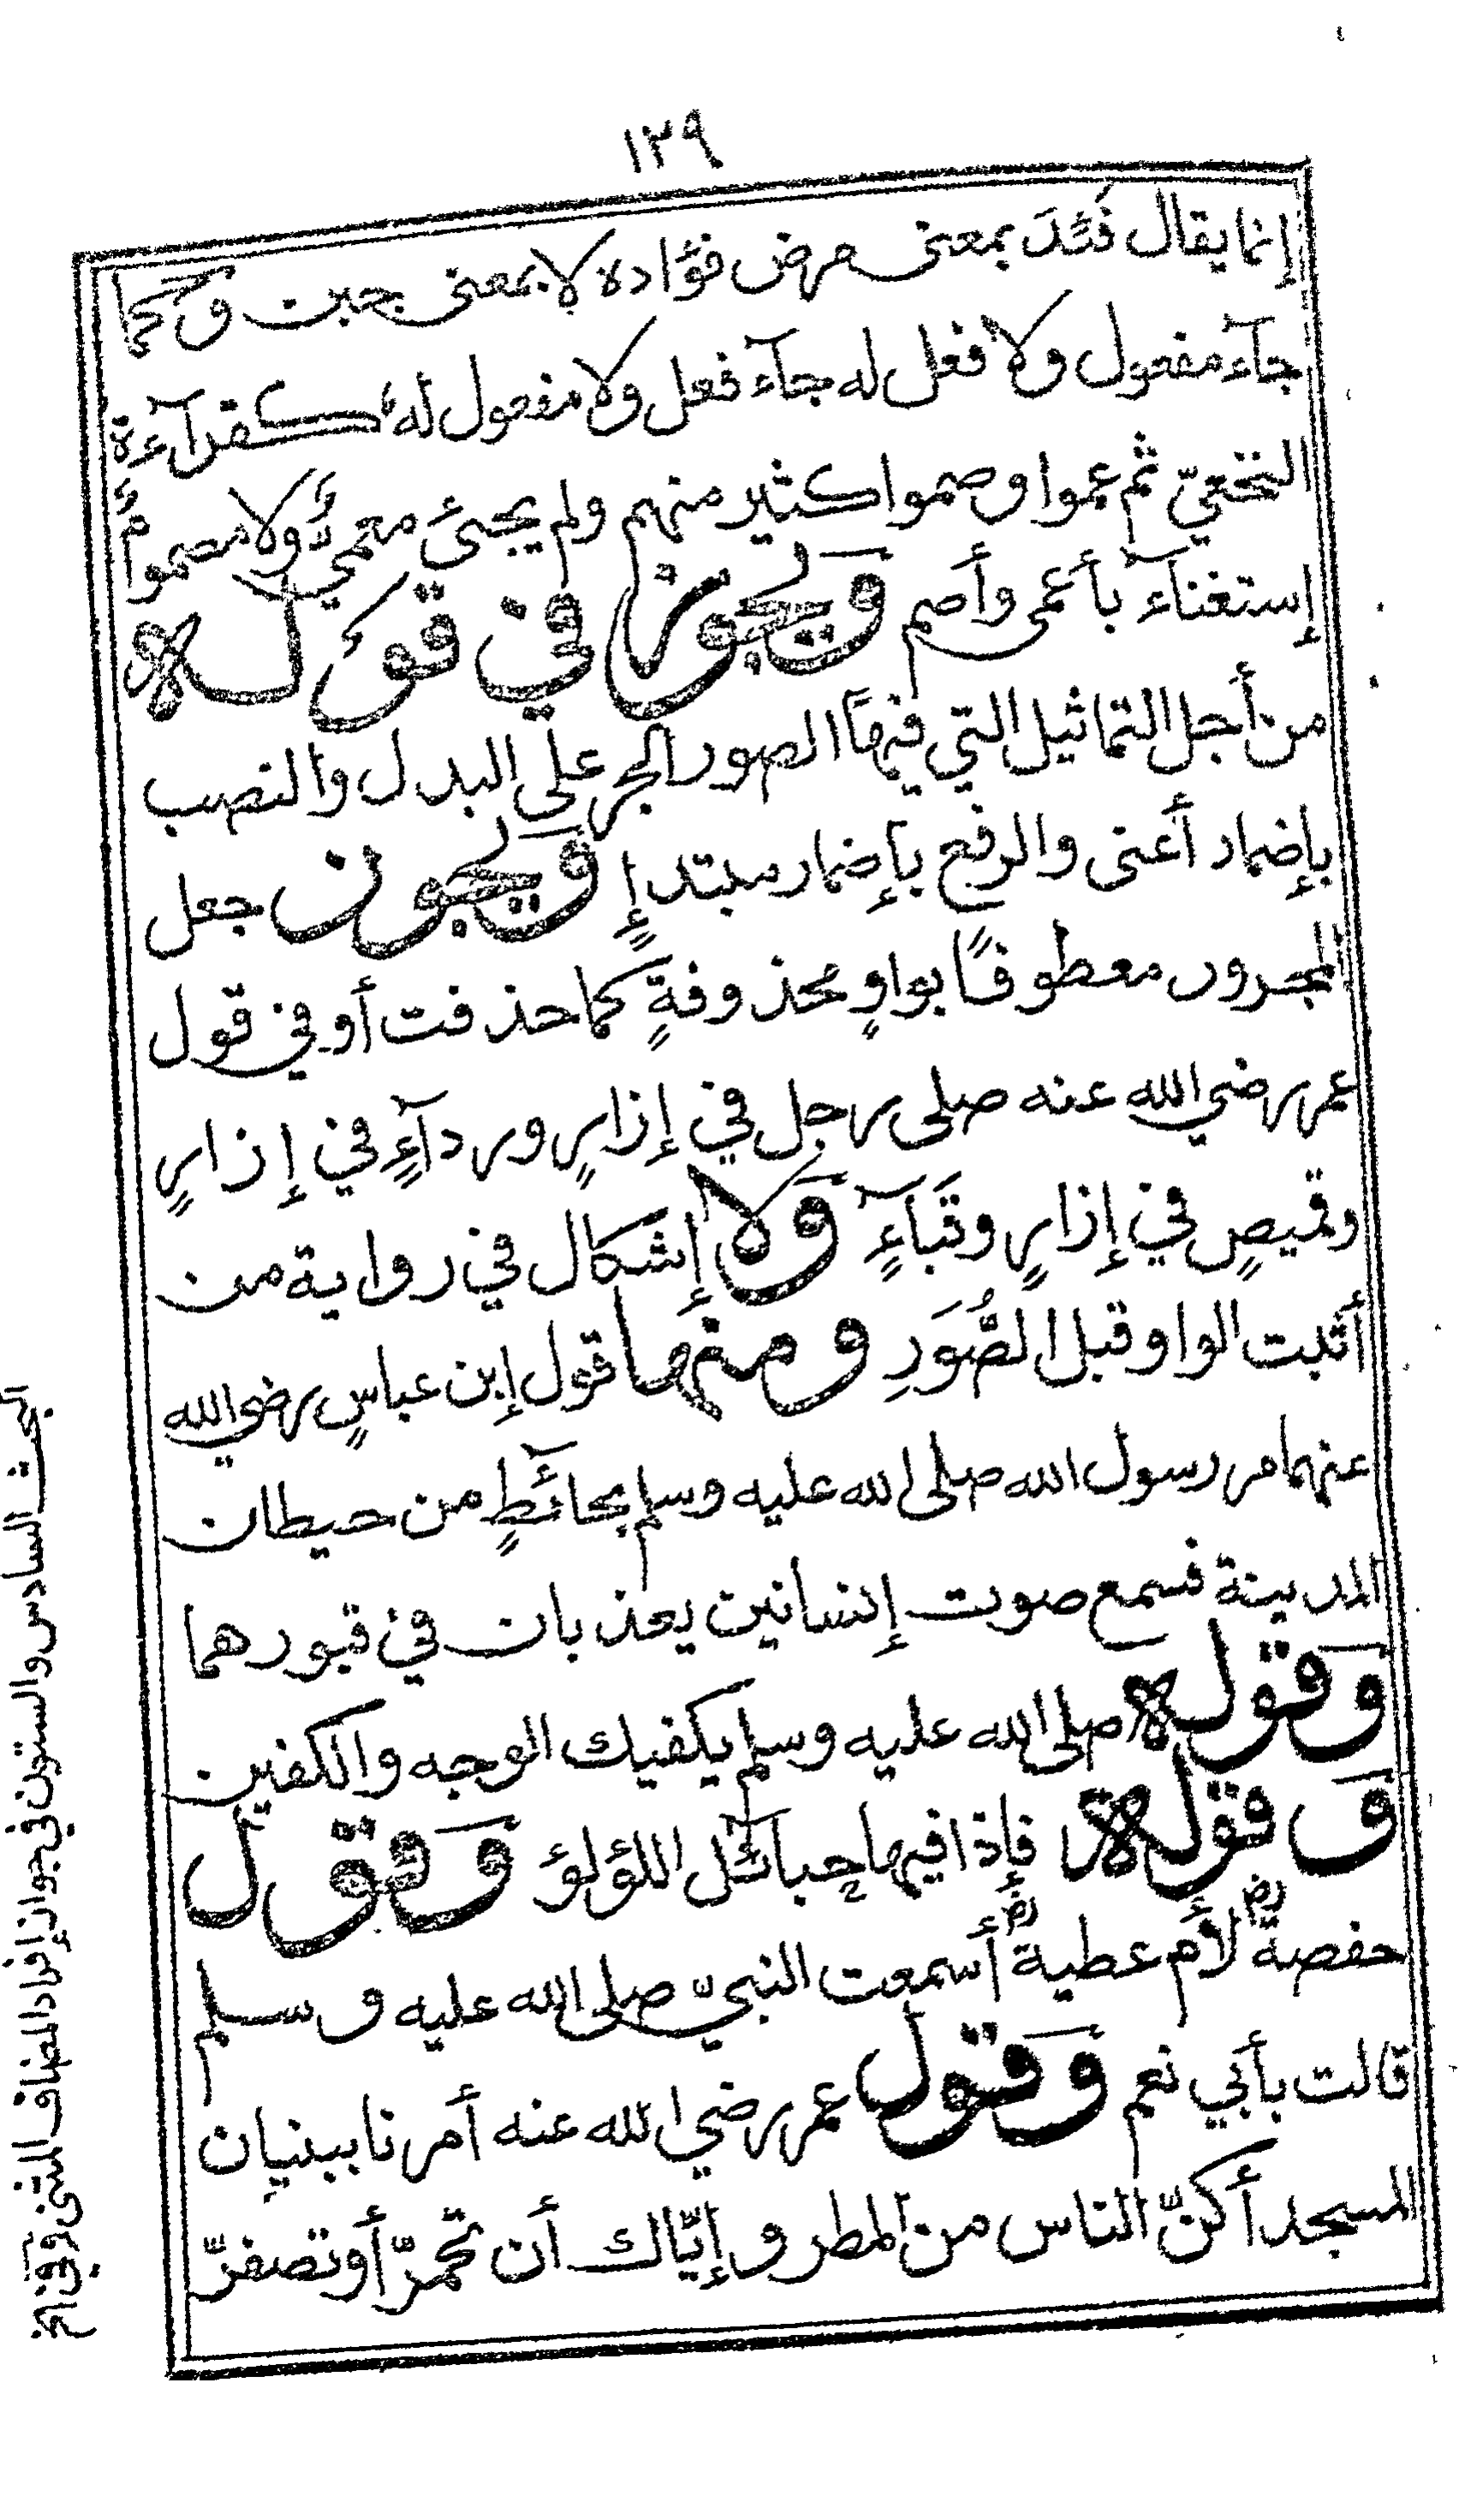 ١٣٩
إنما يقال فَئِدَ بمعنى مرض فؤاده لا بمعنى جبن وكما
جآء مفعول ولا فعل له جآء فعل ولا مفعول له كقرآءة
النخعيّ ثم عموا وصموا كثير منهم ولم يجئ معميٌّ ولا مصمومٌ
إستغنآء بأعمى وأصم ويجوز في قوله
من أجل التماثيل التي فيها الصور الجر على البدل والنصب
بإضمار أعنى والرفع بإضمار مبتدإٍ ويجوز جعل
المجرور معطوفًا بواوٍ محذوفةٍ كما حذفت أو في قول
عمر رضي الله عنه صلى رجل في إزارٍ وردآءٍ في إزارٍ
وقميصٍ في إزارٍ وقَبَآءٍ ولا إشكال في رواية من
أثبت الواو قبل الصُّوَرِ ومنها قول إبن عباسٍ رضي الله
عنهما مر رسول الله صلى الله عليه وسلم بحآئطٍ من حيطان
المدينة فسمع صوت إنسانين يعذبان في قبورهما
وقوله صلى الله عليه وسلم يكفيك الوجه والكفين
وقوله فإذا فيها حبآئل اللؤلؤ وقول
حفصة رض لأم عطية رض أسمعت النبيّ صلى الله عليه وسلم
قالت بأبي نعم وقول عمر رضي الله عنه أمر نا ببنيان
المسجد أكنّ الناس من المطر وإيّاك أن تحمرّ أو تصفرّ
البحث السادس والستون في جواز إفراد المضاف المثنى وفي